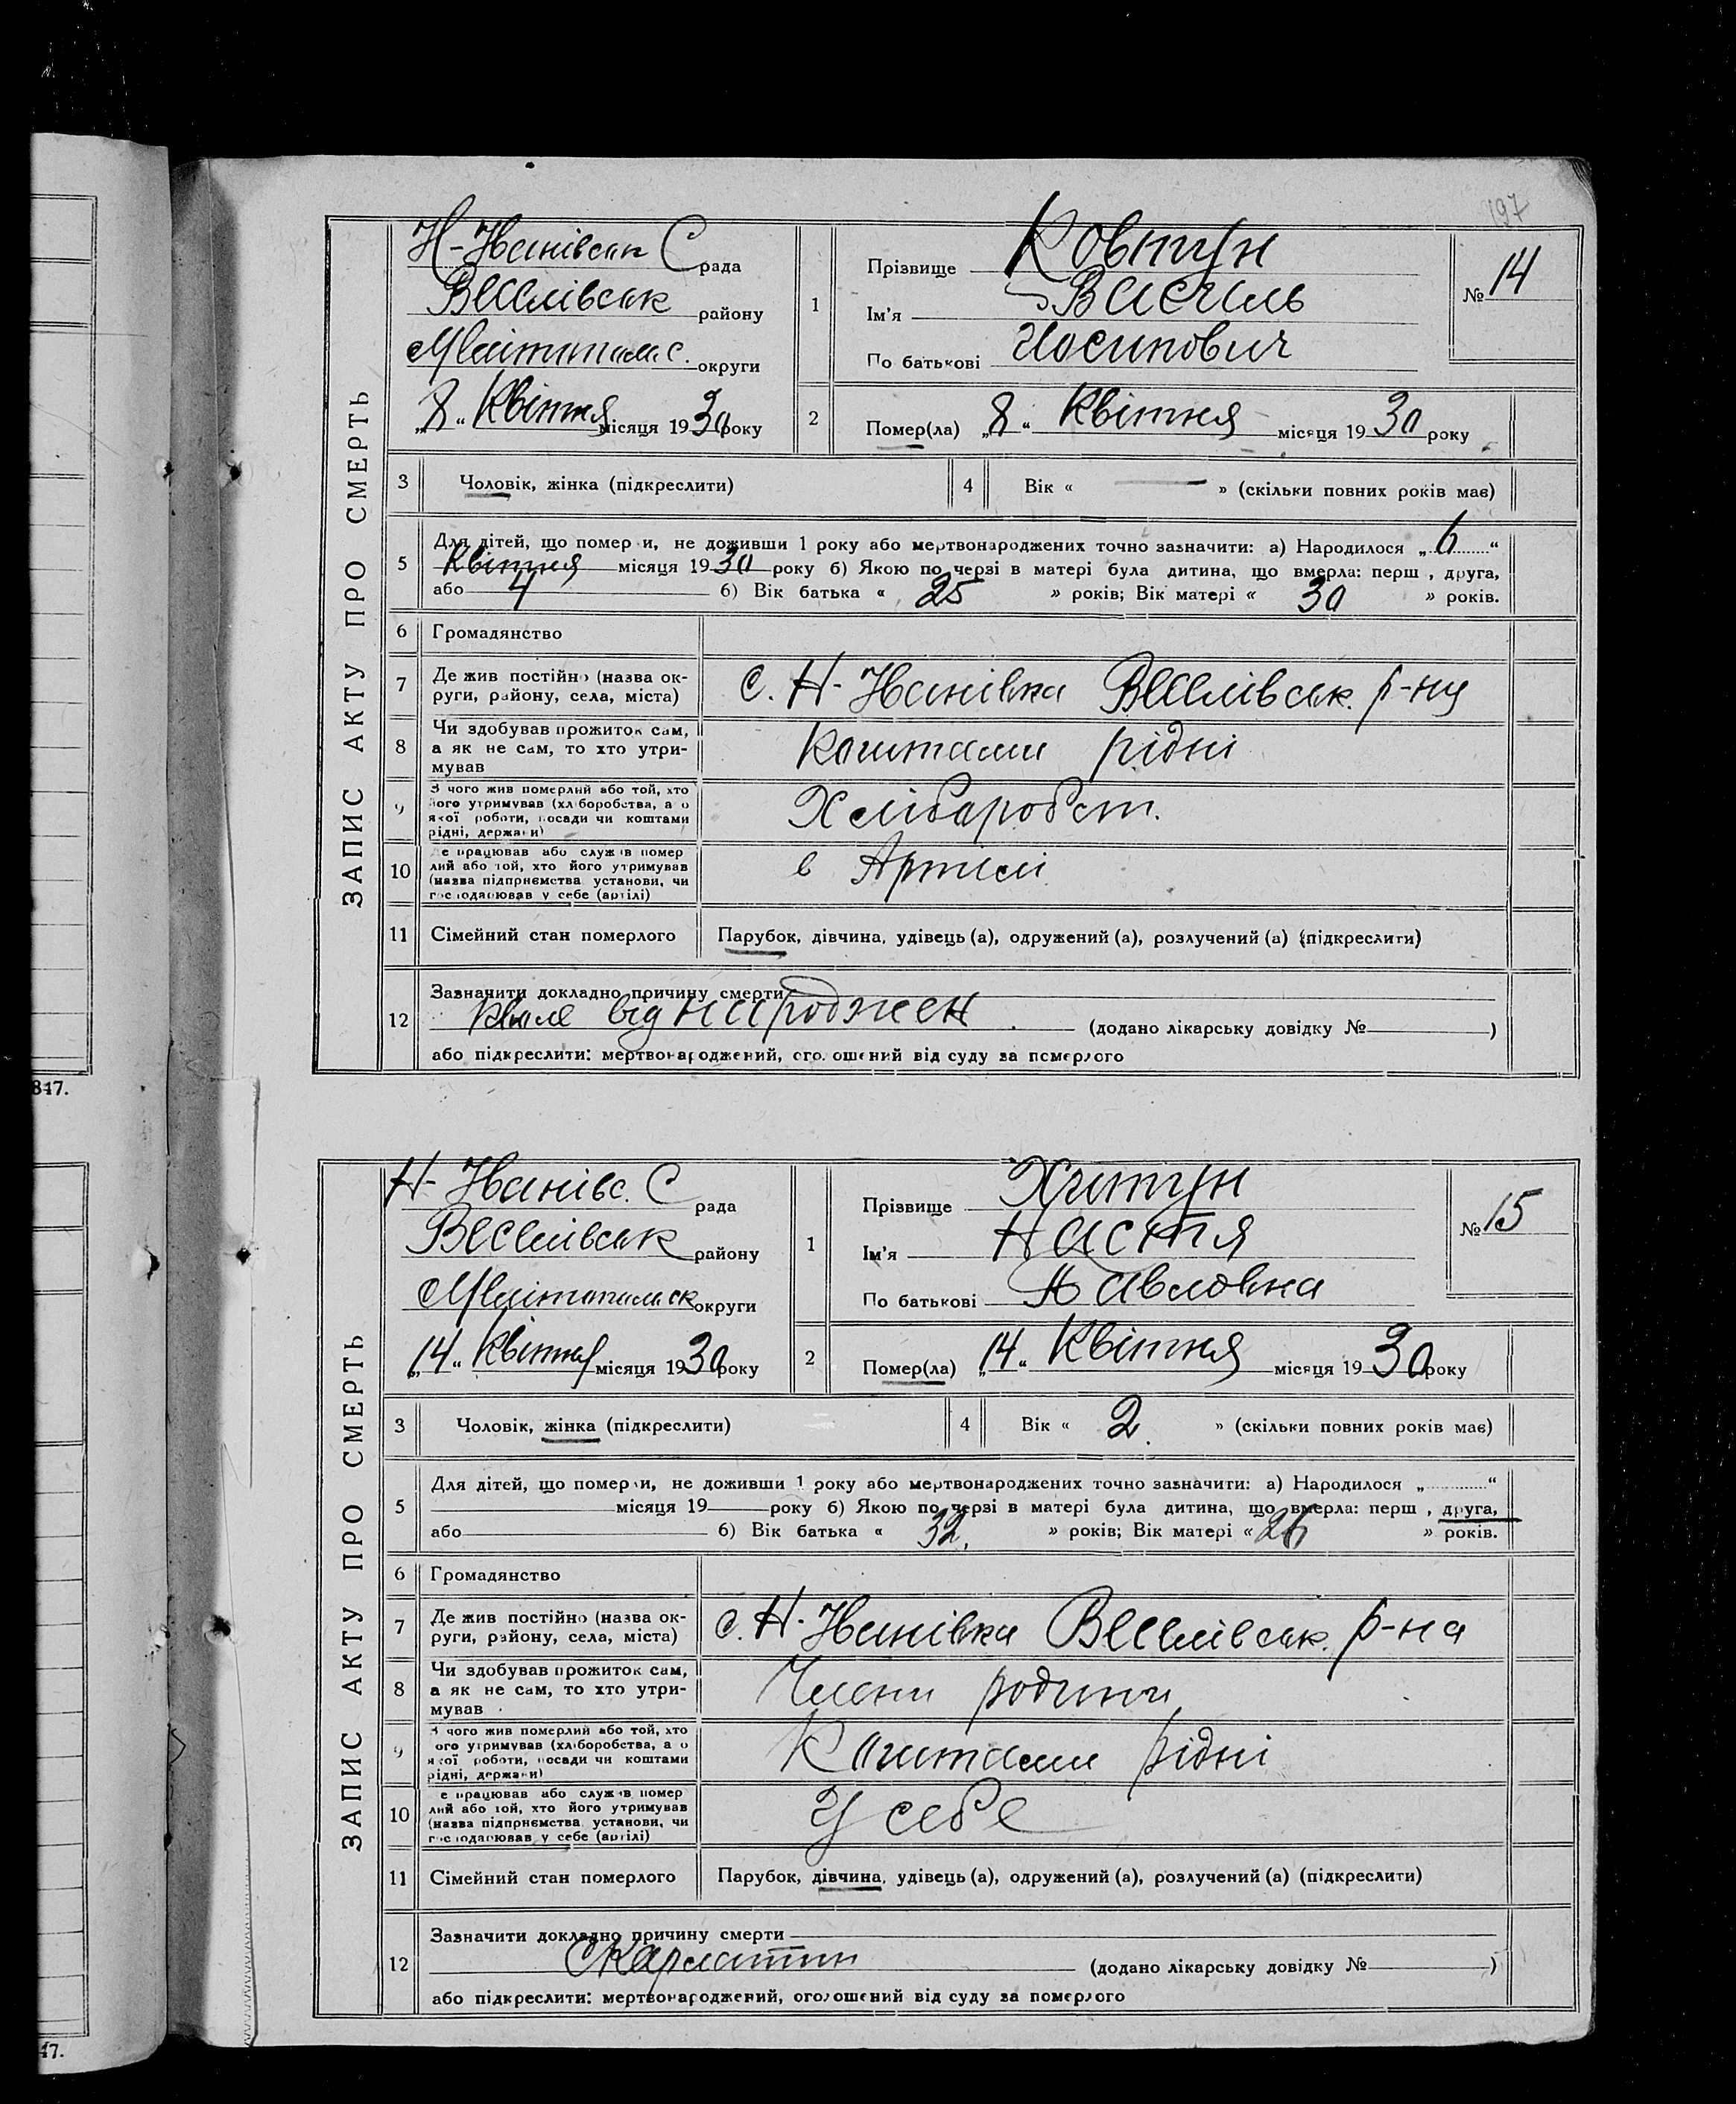 197
ЗАПИС АКТУ ПРО СМЕРТЬ
Н-Іванівськ С рада
Веселівськ району
Мелітопільс. округи
„8“ Квітня місяця 1930 року
1
Прізвище Ковтун
Ім'я Василь
По батькові Йосипович
№ 14
2
Помер(ла) „8“ Квітня місяця 1930 року
3 Чоловік, жінка (підкреслити)
4 Вік « — » (скільки повних років має)
5 Для дітей, що померли, не доживши 1 року або мертвонароджених точно зазначити: а) Народилося „6“
Квітня місяця 1930 року б) Якою по черзі в матері була дитина, що вмерла: перш , друга,
або 4 б) Вік батька « 25 » років; Вік матері « 30 » років.
6 Громадянство
7 Де жив постійно (назва округи, району, села, міста) с. Н-Іванівка Веселівськ. р-ну
8 Чи здобував прожиток сам, а як не сам, то хто утримував Коштами рідні
9 З чого жив померлий або той, хто його утримував (хліборобства, а о якої роботи, посади чи коштами рідні, держави) Хліборобст.
10 е працював або служив помер лий або той, хто його утримував (назва підприємства установи, чи господарював у себе (артілі) в Артілі
11 Сімейний стан померлого Парубок, дівчина, удівець (а), одружений (а), розлучений (а) (підкреслити)
12 Зазначити докладно причину смерти
від народжен (додано лікарську довідку № )
або підкреслити: мертвонароджений, оголошений від суду за померлого
847.
ЗАПИС АКТУ ПРО СМЕРТЬ
Н-Іванівс. С рада
Веселівськ району
Мелітопільськ округи
„14“ Квітня місяця 1930 року
1
Прізвище Хитун
Ім'я Настя
По батькові Павловна
№ 15
2
Помер(ла) „14“ Квітня місяця 1930 року
3 Чоловік, жінка (підкреслити)
4 Вік « 2. » (скільки повних років має)
5 Для дітей, що померли, не доживши 1 року або мертвонароджених точно зазначити: а) Народилося „ “
місяця 19 року б) Якою по черзі в матері була дитина, що вмерла: перш , друга,
або б) Вік батька « 32. » років; Вік матері « 26 » років.
6 Громадянство
7 Де жив постійно (назва округи, району, села, міста) с. Н-Іванівка Веселівськ. р-на
8 Чи здобував прожиток сам, а як не сам, то хто утримував Члени родини
9 З чого жив померлий або той, хто ого утримував (хліборобства, а о якої роботи, посади чи коштами рідні, держави) Коштами рідні
10 е працював або служив помер лий або той, хто його утримував (назва підприємства установи, чи господарював у себе (артілі) У себе
11 Сімейний стан померлого Парубок, дівчина, удівець (а), одружений (а), розлучений (а) (підкреслити)
12 Зазначити докладно причину смерти
Скарлатин (додано лікарську довідку № )
або підкреслити: мертвонароджений, оголошений від суду за померлого
47.